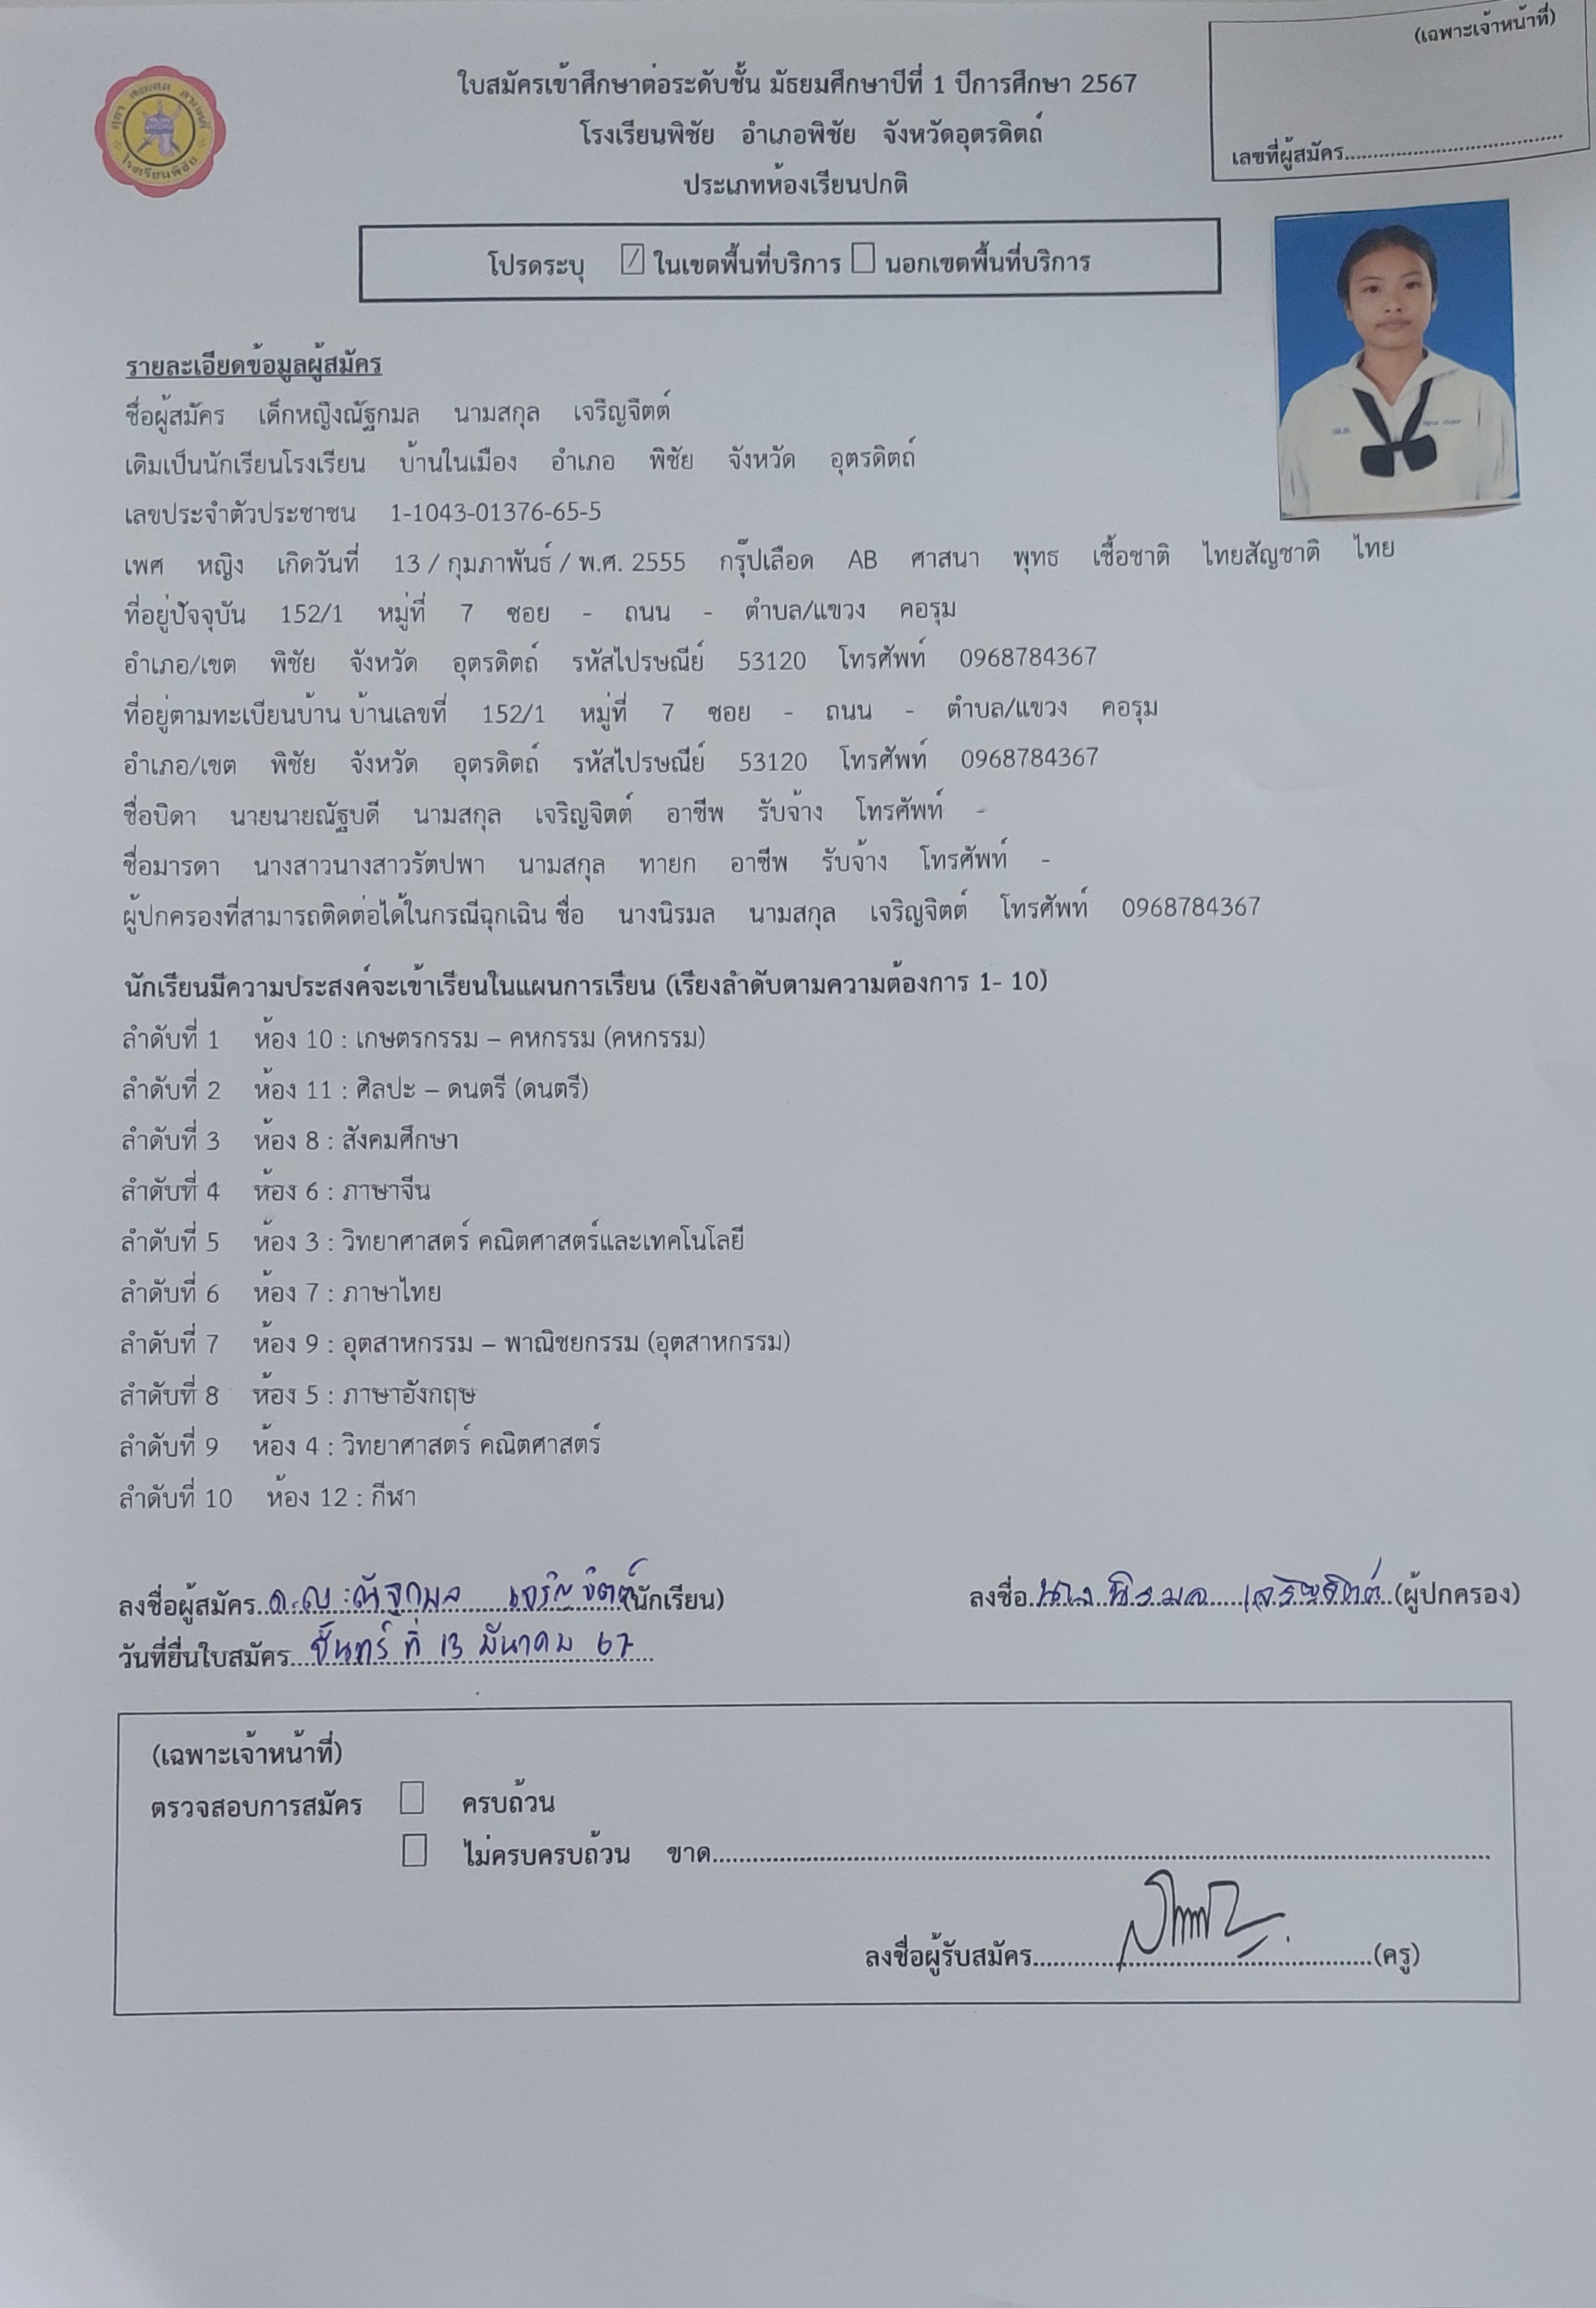 (เฉพาะเจ้าหน้าที่)
เลขที่ผู้สมัคร
ใบสมัครเข้าศึกษาต่อระดับชั้น มัธยมศึกษาปีที่ 1 ปีการศึกษา 2567
โรงเรียนพิชัย อำเภอพิชัย จังหวัดอุตรดิตถ์
ประเภทห้องเรียนปกติ
โรงเรียนพิชัย
โปรดระบุ ☑ ในเขตพื้นที่บริการ ☐ นอกเขตพื้นที่บริการ
รายละเอียดข้อมูลผู้สมัคร
ชื่อผู้สมัคร เด็กหญิงณัฐกมล นามสกุล เจริญจิตต์
เดิมเป็นนักเรียนโรงเรียน บ้านในเมือง อำเภอ พิชัย จังหวัด อุตรดิตถ์
เลขประจำตัวประชาชน 1-1043-01376-65-5
เพศ หญิง เกิดวันที่ 13 / กุมภาพันธ์ / พ.ศ. 2555 กรุ๊ปเลือด AB ศาสนา พุทธ เชื้อชาติ ไทยสัญชาติ ไทย
ที่อยู่ปัจจุบัน 152/1 หมู่ที่ 7 ซอย - ถนน - ตำบล/แขวง คอรุม
อำเภอ/เขต พิชัย จังหวัด อุตรดิตถ์ รหัสไปรษณีย์ 53120 โทรศัพท์ 0968784367
ที่อยู่ตามทะเบียนบ้าน บ้านเลขที่ 152/1 หมู่ที่ 7 ซอย - ถนน - ตำบล/แขวง คอรุม
อำเภอ/เขต พิชัย จังหวัด อุตรดิตถ์ รหัสไปรษณีย์ 53120 โทรศัพท์ 0968784367
ชื่อบิดา นายนายณัฐบดี นามสกุล เจริญจิตต์ อาชีพ รับจ้าง โทรศัพท์ -
ชื่อมารดา นางสาวนางสาวรัตปพา นามสกุล ทายก อาชีพ รับจ้าง โทรศัพท์ -
ผู้ปกครองที่สามารถติดต่อได้ในกรณีฉุกเฉิน ชื่อ นางนิรมล นามสกุล เจริญจิตต์ โทรศัพท์ 0968784367
นักเรียนมีความประสงค์จะเข้าเรียนในแผนการเรียน (เรียงลำดับตามความต้องการ 1- 10)
ลำดับที่ 1 ห้อง 10 : เกษตรกรรม – คหกรรม (คหกรรม)
ลำดับที่ 2 ห้อง 11 : ศิลปะ – ดนตรี (ดนตรี)
ลำดับที่ 3 ห้อง 8 : สังคมศึกษา
ลำดับที่ 4 ห้อง 6 : ภาษาจีน
ลำดับที่ 5 ห้อง 3 : วิทยาศาสตร์ คณิตศาสตร์และเทคโนโลยี
ลำดับที่ 6 ห้อง 7 : ภาษาไทย
ลำดับที่ 7 ห้อง 9 : อุตสาหกรรม – พาณิชยกรรม (อุตสาหกรรม)
ลำดับที่ 8 ห้อง 5 : ภาษาอังกฤษ
ลำดับที่ 9 ห้อง 4 : วิทยาศาสตร์ คณิตศาสตร์
ลำดับที่ 10 ห้อง 12 : กีฬา
ลงชื่อผู้สมัคร ด.ญ. ณัฐกมล เจริญจิตต์ (นักเรียน) ลงชื่อ นางนิรมล เจริญจิตต์ (ผู้ปกครอง)
วันที่ยื่นใบสมัคร จันทร์ ที่ 13 มีนาคม 67
(เฉพาะเจ้าหน้าที่)
ตรวจสอบการสมัคร ☐ ครบถ้วน
☐ ไม่ครบครบถ้วน ขาด
ลงชื่อผู้รับสมัคร (ครู)